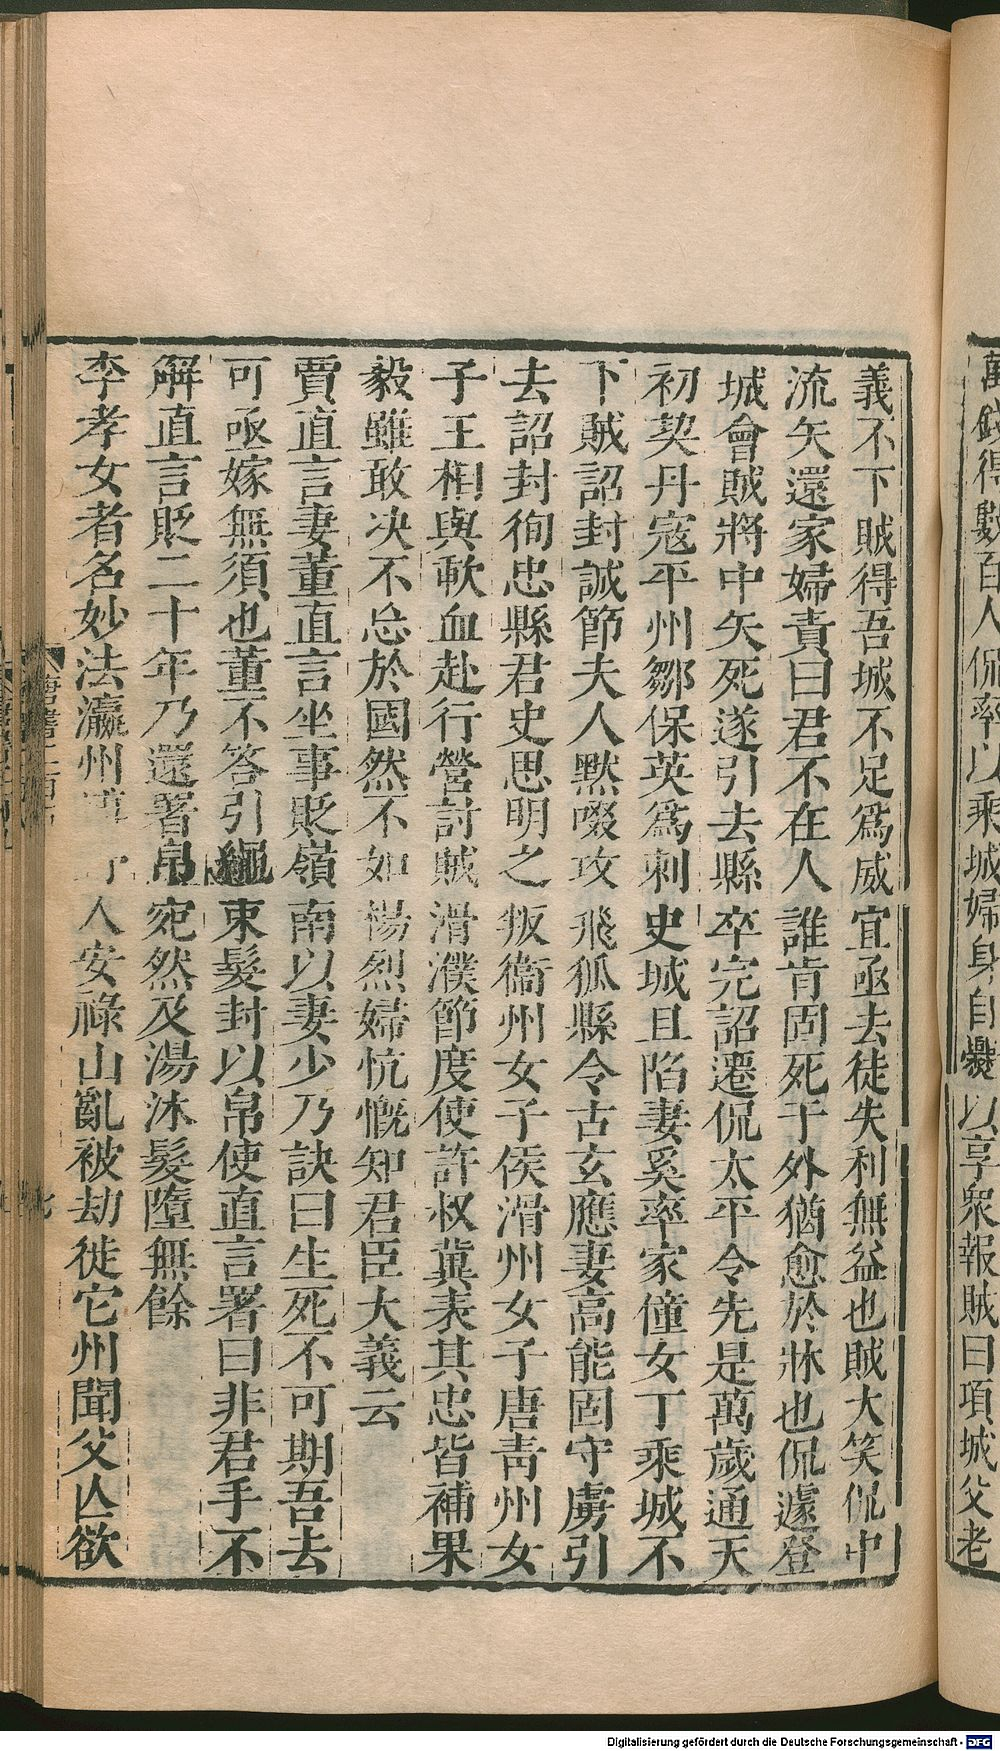 萬錢得數百人侃率以乘城婦身自爨以享衆報賊曰項城父老
義不下賊得吾城不足爲威宜亟去徒失利無益也賊大笑侃中
流矢還家婦責曰君不在人誰肯固死于外猶愈於牀也侃遽登
城會賊將中矢死遂引去縣卒完詔遷侃太平令先是萬歲通天
初契丹寇平州鄒保英爲刺史城且陷妻奚率家僮女丁乘城不
下賊詔封誠節夫人默啜攻飛狐縣令古玄應妻高能固守虜引
去詔封徇忠縣君史思明之叛衞州女子侯滑州女子唐青州女
子王相與歃血赴行營討賊滑濮節度使許叔冀表其忠皆補果
毅雖敢決不忘於國然不如楊烈婦忼慨知君臣大義云
賈直言妻董直言坐事貶嶺南以妻少乃訣曰生死不可期吾去
可亟嫁無須也董不答引繩束髮封以帛使直言署曰非君手不
解直言貶二十年乃還署帛宛然及湯沐髮墮無餘
李孝女者名妙法瀛州博野人安祿山亂被劫徙它州聞父亡欲
唐書二百
Digitalisierung gefördert durch die Deutsche Forschungsgemeinschaft - DFG